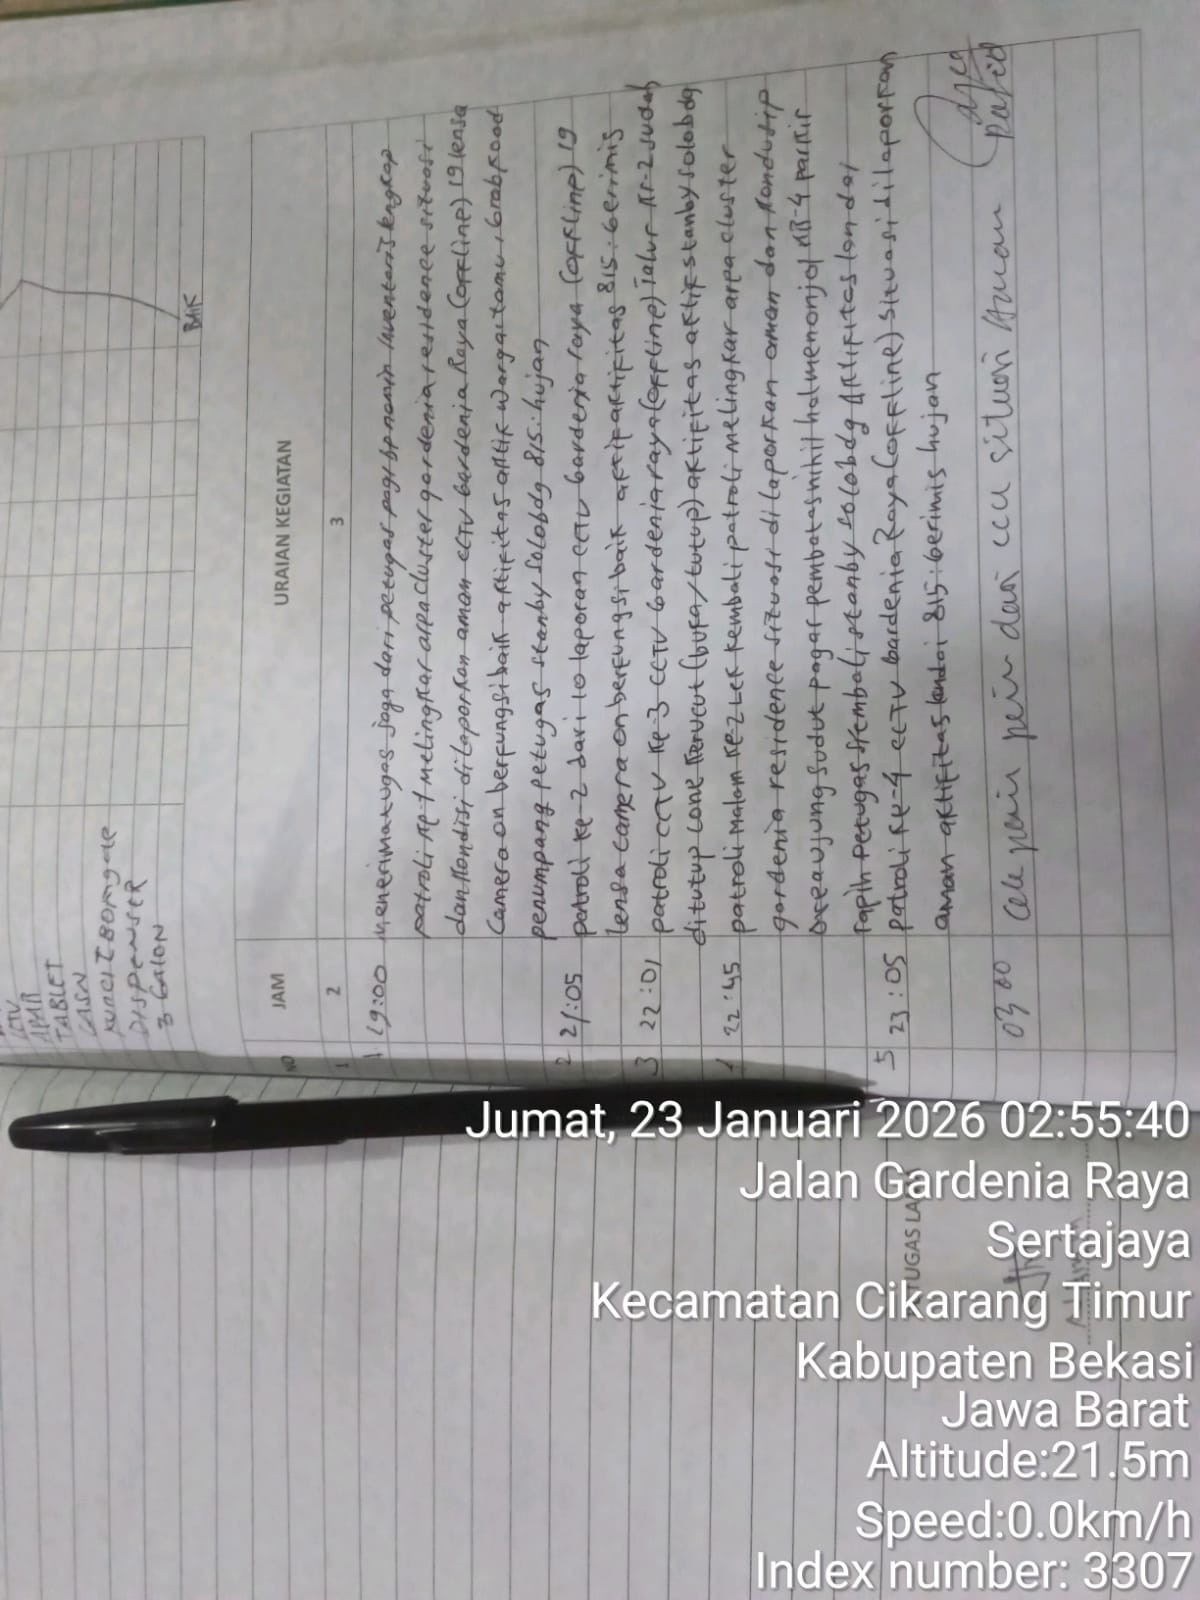 CCTV
APAR
TABLET
CASAN
KUNCI T BORMGATE
DISPENSER
3 GALON
BAIK
NO JAM URAIAN KEGIATAN
1 2 3
1 19:00 menerima tugas jaga dari petugas pagi bp namin inventaris lengkap
patroli ke-1 melingkar area cluster gardenia residence situasi
dan kondisi dilaporkan aman CCTV Gardenia Raya (offline) 19 lensa
Camera on berfungsi baik aktifitas aktif warga, tamu, Grabfood
penumpang petugas stanby solobdg 815: hujan
2 21:05 patroli ke-2 dari 10 laporan CCTV Gardenia raya (offline) 19
lensa camera on berfungsi baik aktif aktifitas 815: Gerimis
3 22:01 patroli CCTV ke-3 CCTV Gardenia raya (offline) Jalur KR-2 sudah
ditutup Cone Kerucut (buka/tutup) aktifitas aktif stanby solobdg
22:45 patroli malam kembali patroli melingkar area cluster
gardenia residence situasi dilaporkan aman dan kondusip
ujung sudut pagar pembatas nihil hal menonjol KR-4 parkir
rapih petugas kembali stanby solobdg aktifitas landai
5 23:05 patroli ke-4 CCTV Gardenia Raya (offline) situasi dilaporkan
aman aktifitas landai 815: Gerimis hujan
03 00 Cek poin poin dari situasi Aman
PETUGAS LA
Jumat, 23 Januari 2026 02:55:40
Jalan Gardenia Raya
Sertajaya
Kecamatan Cikarang Timur
Kabupaten Bekasi
Jawa Barat
Altitude:21.5m
Speed:0.0km/h
Index number: 3307